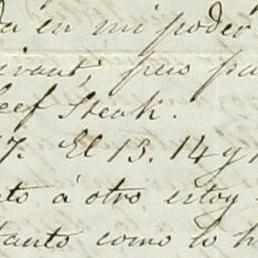 da en mi poder
pues pa
eef Steak.
7. El 13. 14 y 1
to á otro estoy
tanto como lo h